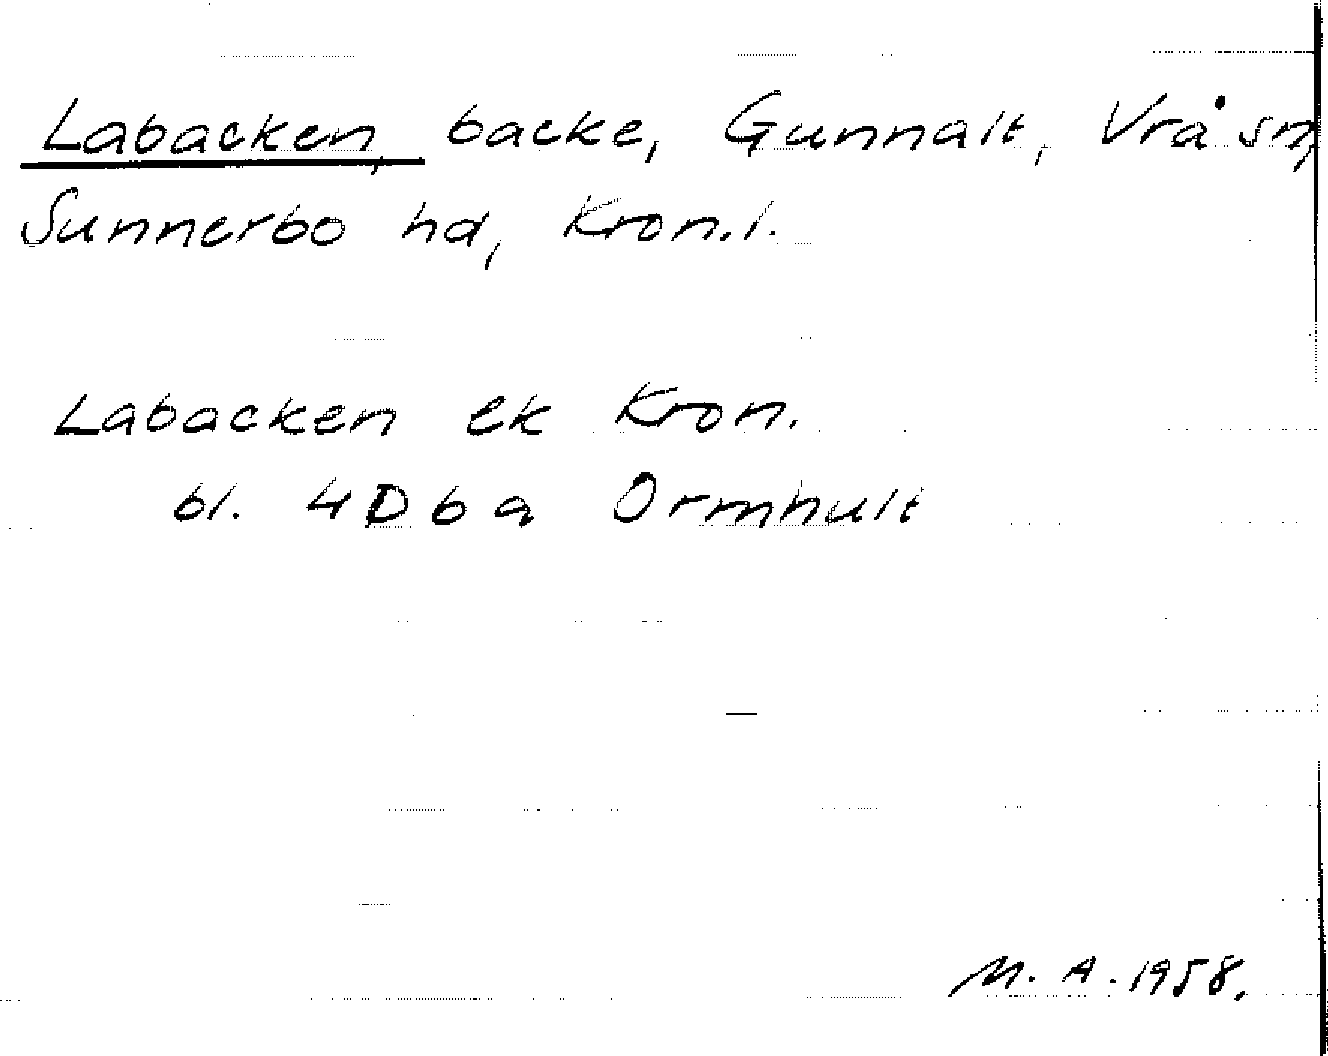 Labacken, backe, Gunnalt, Vrå sn,
Sunnerbo hd, Kron.l.
Labacken ek Kron.
bl. 4D6a Ormhult
M. A. 1958.